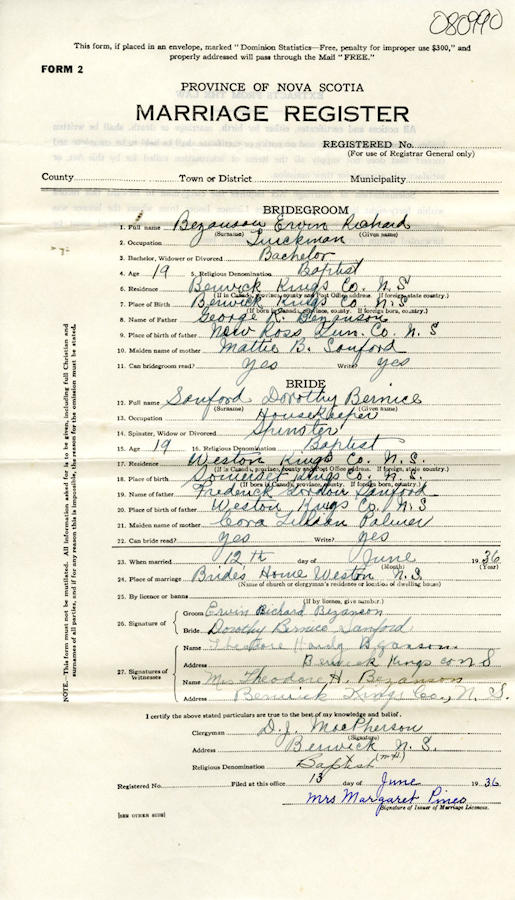 080990
This form, if placed in an envelope, marked "Dominion Statistics—Free, penalty for improper use $300," and
properly addressed will pass through the Mail "FREE."
FORM 2
PROVINCE OF NOVA SCOTIA
MARRIAGE REGISTER
REGISTERED No.
(For use of Registrar General only)
County Town or District Municipality
BRIDEGROOM
1. Full name Bezanson Ervin Richard
(Surname) (Given name)
2. Occupation Truckman
3. Bachelor, Widower or Divorced Bachelor
4. Age 19 5. Religious Denomination Baptist
6. Residence Berwick Kings Co. N. S
(If in Canada, province, county and Post Office address. If foreign, state country.)
7. Place of Birth Berwick Kings Co. N. S
(If born in Canada, province, county. If foreign born, country.)
8. Name of Father George R. Bezanson
9. Place of birth of father New Ross Lun. Co. N. S
10. Maiden name of mother Mattie B. Sanford
11. Can bridegroom read? Yes Write? Yes
BRIDE
12. Full name Sanford Dorothy Bernice
(Surname) (Given name)
13. Occupation Housekeeper
14. Spinster, Widow or Divorced Spinster
15. Age 19 16. Religious Denomination Baptist
17. Residence Weston Kings Co. N. S.
(If in Canada, province, county and Post Office address. If foreign, state country.)
18. Place of birth Somerset Kings Co. N. S.
(If born in Canada, province, county. If foreign born, country.)
19. Name of father Frederick Gordon Sanford
20. Place of birth of father Weston Kings Co. N. S
21. Maiden name of mother Cora Lillian Palmer
22. Can bride read? Yes Write? Yes
23. When married 12th day of June 1936
(Month) (Year)
24. Place of marriage Bride's Home Weston N. S.
(Name of church or clergyman's residence or location of dwelling house)
25. By licence or banns
(If by license, give number.)
26. Signature of
Groom Ervin Richard Bezanson
Bride Dorothy Bernice Sanford
27. Signatures of Witnesses
Name Theodore Bezanson
Address Berwick Kings co N S
Name Mrs Theodore H. Bezanson
Address Berwick Kings Co., N. S.
I certify the above stated particulars are true to the best of my knowledge and belief.
Clergyman D. J. MacPherson
(Signature)
Address Berwick N. S.
Religious Denomination Baptist
Registered No. Filed at this office 13 day of June 1936
Mrs Margaret Pineo
Signature of Issuer of Marriage Licences.
[SEE OTHER SIDE]
NOTE.—This form must not be mutilated. All information asked for is to be given, including full Christian and
surnames of all parties, and if for any reason this is impossible, the reason for the omission must be stated.